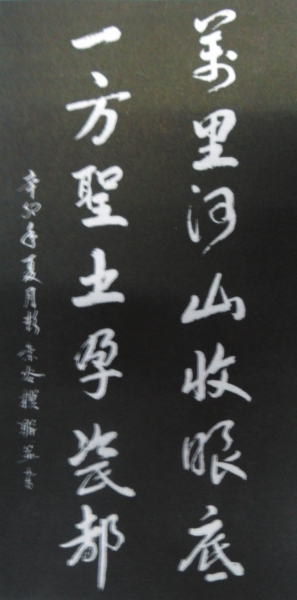 萬里河山收眼底
一方聖土孕瓷都
辛卯年夏月彭